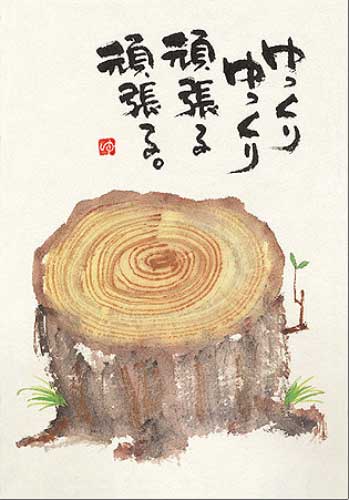 ゆっくり
ゆっくり
頑張る
頑張る。
ゆ